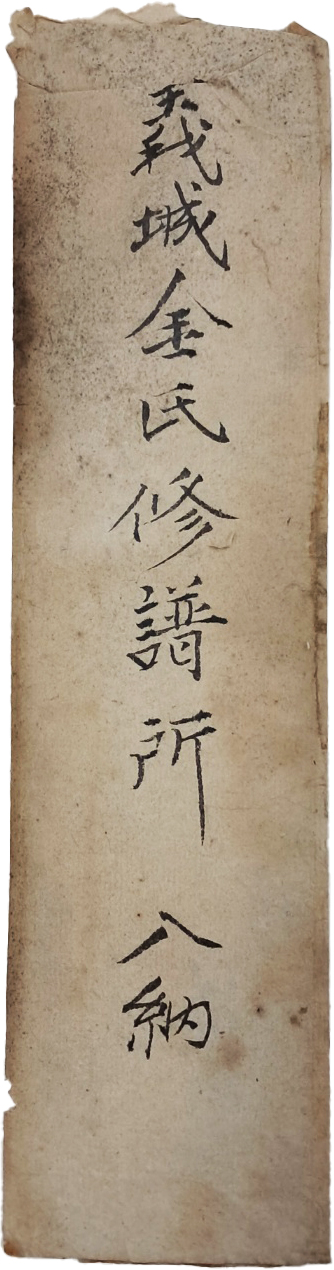 義城金氏修譜所 入納